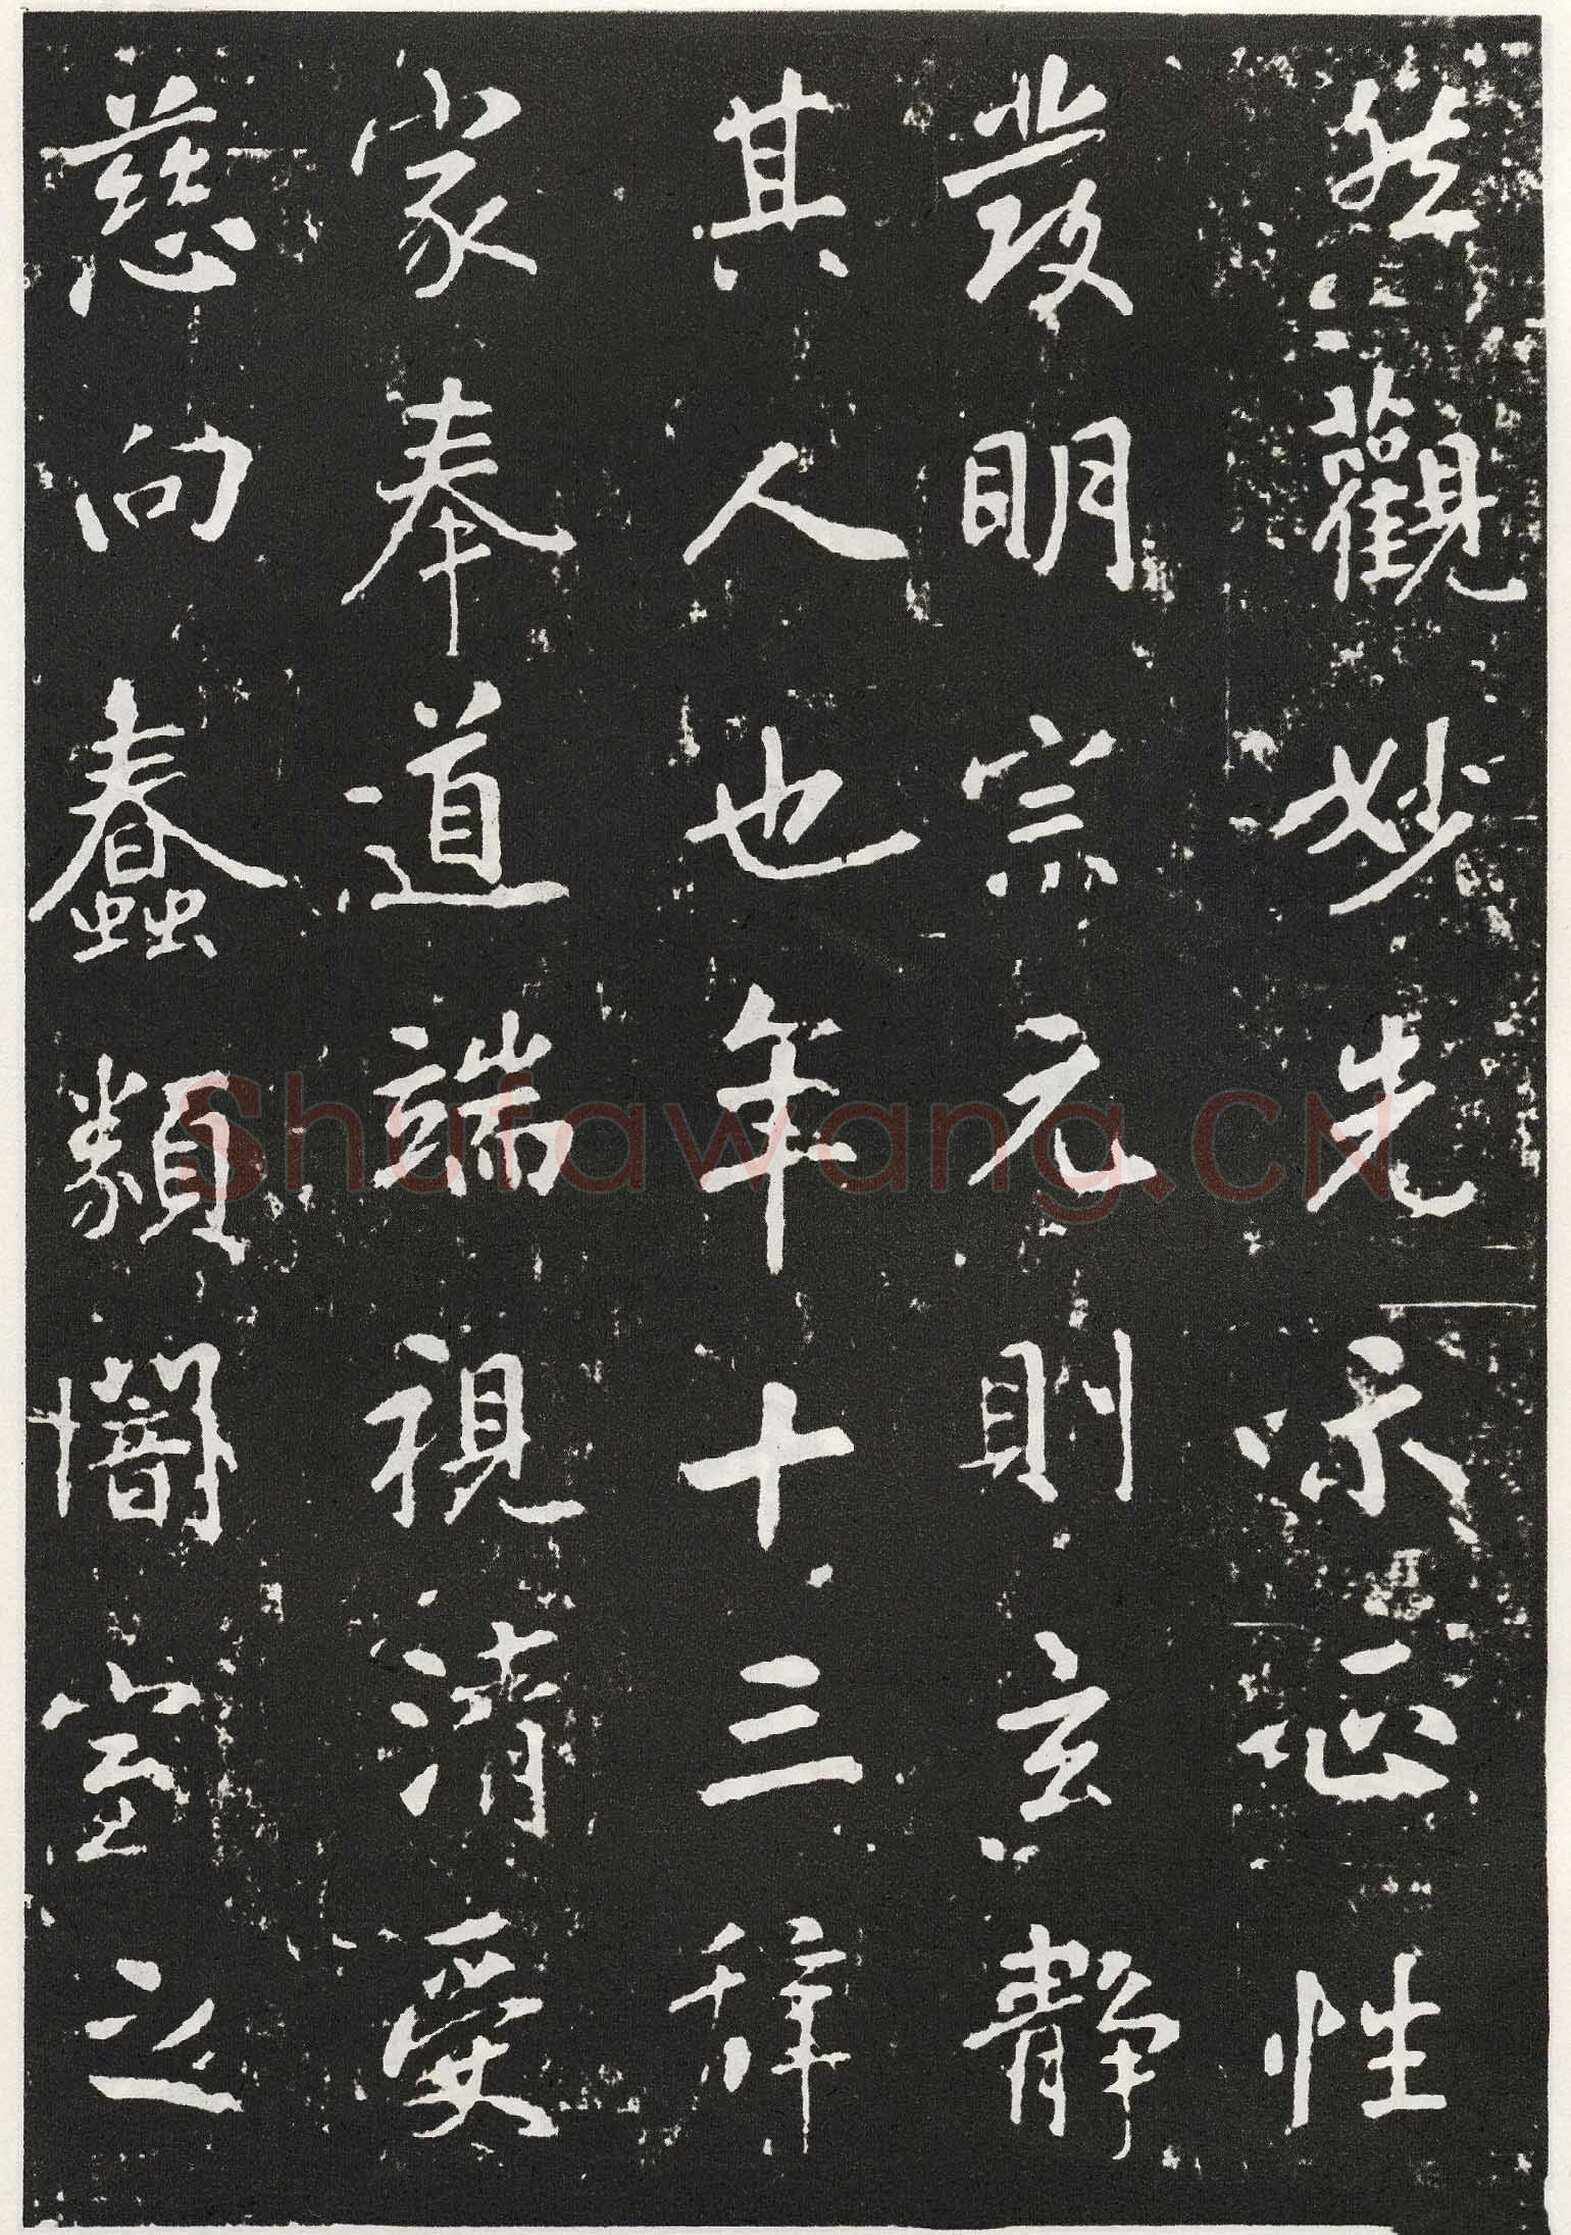 然觀妙先示正性
發明宗元則玄靜
其人也年十三辞
家奉道端視清受
慈向蠢類闇室之
Shufawang.CN